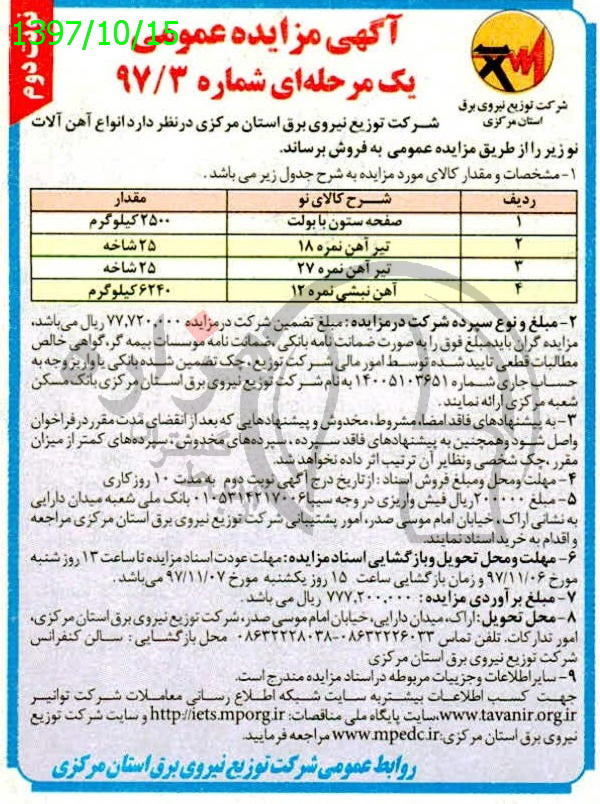 1397/10/15
نوبت دوم
آگهی مزایده عمومی
یک مرحله‌ای شماره ۹۷/۳
شرکت توزیع نیروی برق
استان مرکزی
شرکت توزیع نیروی برق استان مرکزی درنظر دارد انواع آهن آلات
نو زیر را از طریق مزایده عمومی به فروش برساند.
۱- مشخصات و مقدار کالای مورد مزایده به شرح جدول زیر می باشد.
ردیف شرح کالای نو مقدار
۱ صفحه ستون با بولت ۲۵۰۰ کیلوگرم
۲ تیر آهن نمره ۱۸ ۲۵ شاخه
۳ تیر آهن نمره ۲۷ ۲۵ شاخه
۴ آهن نبشی نمره ۱۲ ۶۲۴۰ کیلوگرم
۲- مبلغ و نوع سپرده شرکت در مزایده: مبلغ تضمین شرکت در مزایده ۷۷,۷۲۰,۰۰۰ ریال می‌باشد،
مزایده گران باید مبلغ فوق را به صورت ضمانت نامه بانکی، ضمانت نامه موسسات بیمه گر، گواهی خالص
مطالبات قطعی تایید شده توسط امور مالی شرکت توزیع، چک تضمین شده بانکی یا واریز وجه به
حساب جاری شماره ۱۴۰۰۵۱۰۳۶۵۱ به نام شرکت توزیع نیروی برق استان مرکزی بانک مسکن
شعبه مرکزی ارائه نمایند.
۳- به پیشنهادهای فاقد امضا، مشروط، مخدوش و پیشنهادهایی که بعد از انقضای مدت مقرر در فراخوان
واصل شود و همچنین به پیشنهادهای فاقد سپرده، سپرده‌های مخدوش، سپرده‌های کمتر از میزان
مقرر، چک شخصی ونظایر آن ترتیب اثر داده نخواهد شد.
۴- مهلت ومحل ومبلغ فروش اسناد: از تاریخ درج آگهی نوبت دوم به مدت ۱۰ روز کاری
۵- مبلغ ۲۰۰,۰۰۰ ریال فیش واریزی در وجه سیبا ۰۱۰۵۳۱۴۲۱۷۰۰۶ بانک ملی شعبه میدان دارایی
به نشانی اراک، خیابان امام موسی صدر، امور پشتیبانی شرکت توزیع نیروی برق استان مرکزی مراجعه
و اقدام به خرید اسناد نمایند.
۶- مهلت و محل تحویل و بازگشایی اسناد مزایده: مهلت عودت اسناد مزایده تا ساعت ۱۳ روز شنبه
مورخ ۹۷/۱۱/۰۶ و زمان بازگشایی ساعت ۱۵ روز یکشنبه مورخ ۹۷/۱۱/۰۷ می‌باشد.
۷- مبلغ برآوردی مزایده: ۷۷۷,۲۰۰,۰۰۰ ریال می باشد.
۸- محل تحویل: اراک، میدان دارایی، خیابان امام موسی صدر، شرکت توزیع نیروی برق استان مرکزی،
امور تدارکات. تلفن تماس ۰۸۶۳۲۲۲۶۰۳۳-۰۸۶۳۲۲۲۸۰۳۸ محل بازگشایی: سالن کنفرانس
شرکت توزیع نیروی برق استان مرکزی
۹- سایر اطلاعات و جزییات مربوطه در اسناد مزایده مندرج است.
جهت کسب اطلاعات بیشتر به سایت شبکه اطلاع رسانی معاملات شرکت توانیر
www.tavanir.org.ir، سایت پایگاه ملی مناقصات: http://iets.mporg.ir و سایت شرکت توزیع
نیروی برق استان مرکزی: www.mpedc.ir مراجعه فرمایید.
روابط عمومی شرکت توزیع نیروی برق استان مرکزی